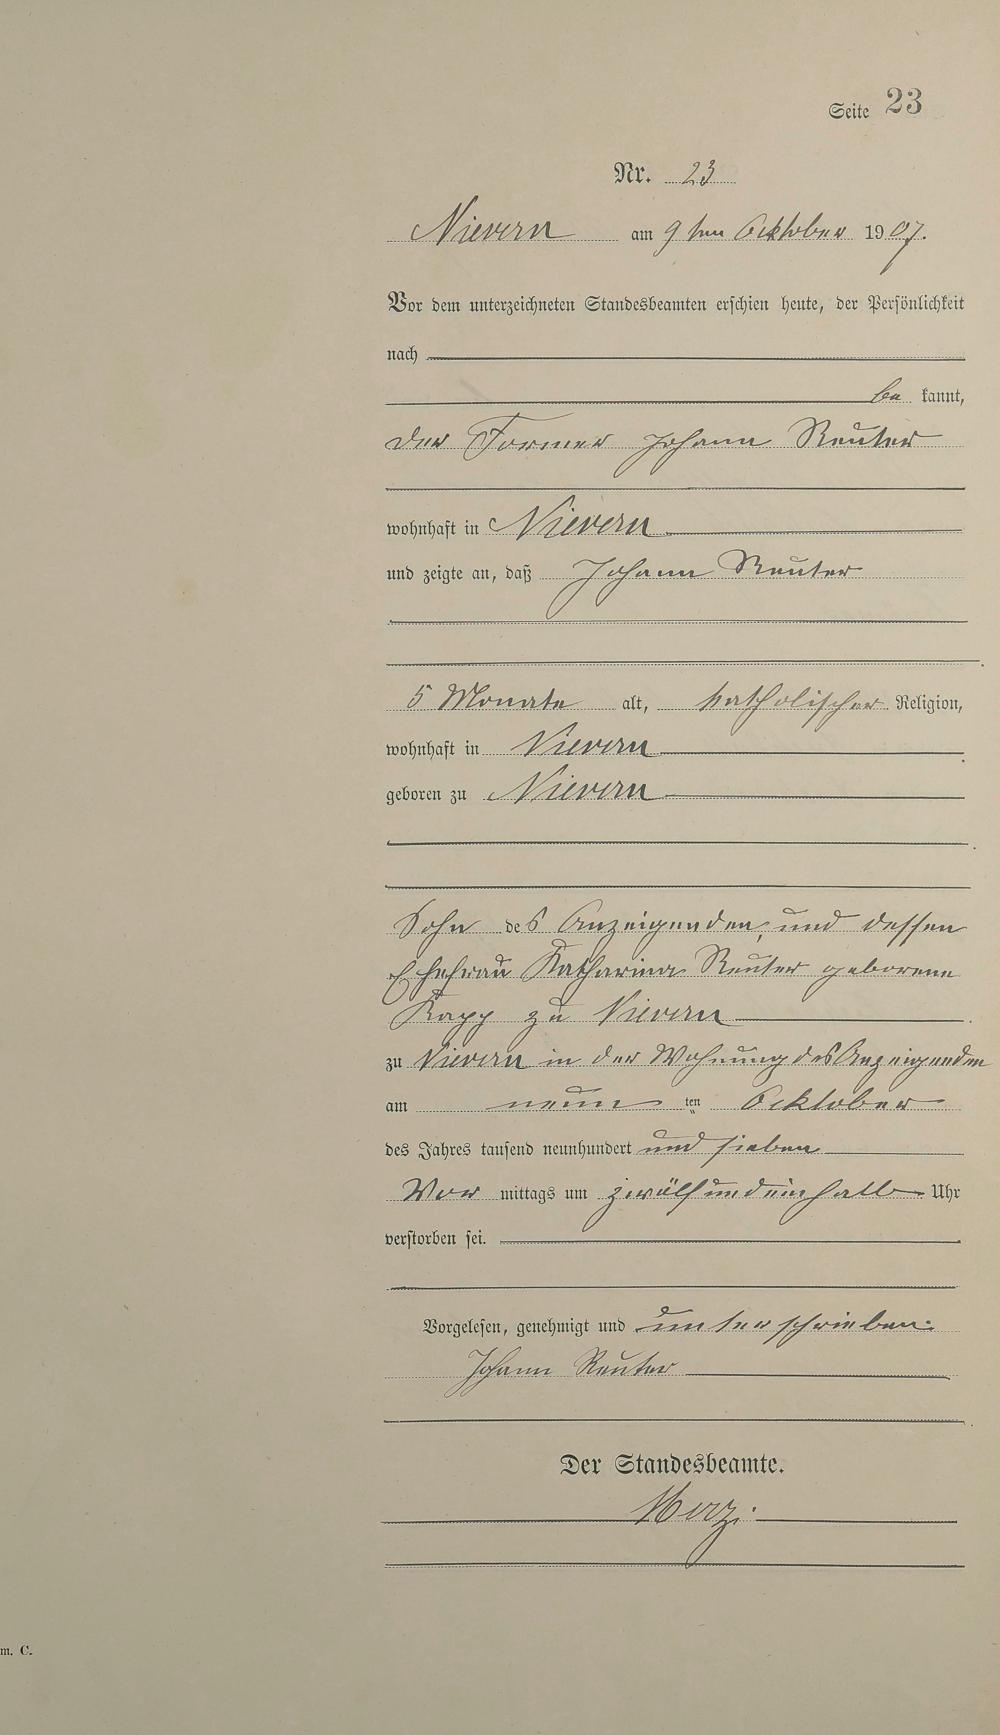 Seite 23
Nr. 23
Nievern am 9ten Ocktober 1907.
Vor dem unterzeichneten Standesbeamten erschien heute, der Persönlichkeit
nach
be kannt,
der Former Johann Reuter
wohnhaft in Nievern
und zeigte an, daß Johann Reuter
5 Monate alt, katholischer Religion,
wohnhaft in Nievern
geboren zu Nievern
Sohn des Anzeigenden, und dessen
Ehefrau Katharina Reuter geborene
Kapp zu Nievern
zu Nievern in der Wohnung des Anzeigenden
am neun ten Ocktober
des Jahres tausend neunhundert und sieben
Vor mittags um zwölf und ein halb Uhr
verstorben sei.
Vorgelesen, genehmigt und unterschrieben.
Johann Reuter
Der Standesbeamte.
m. C.